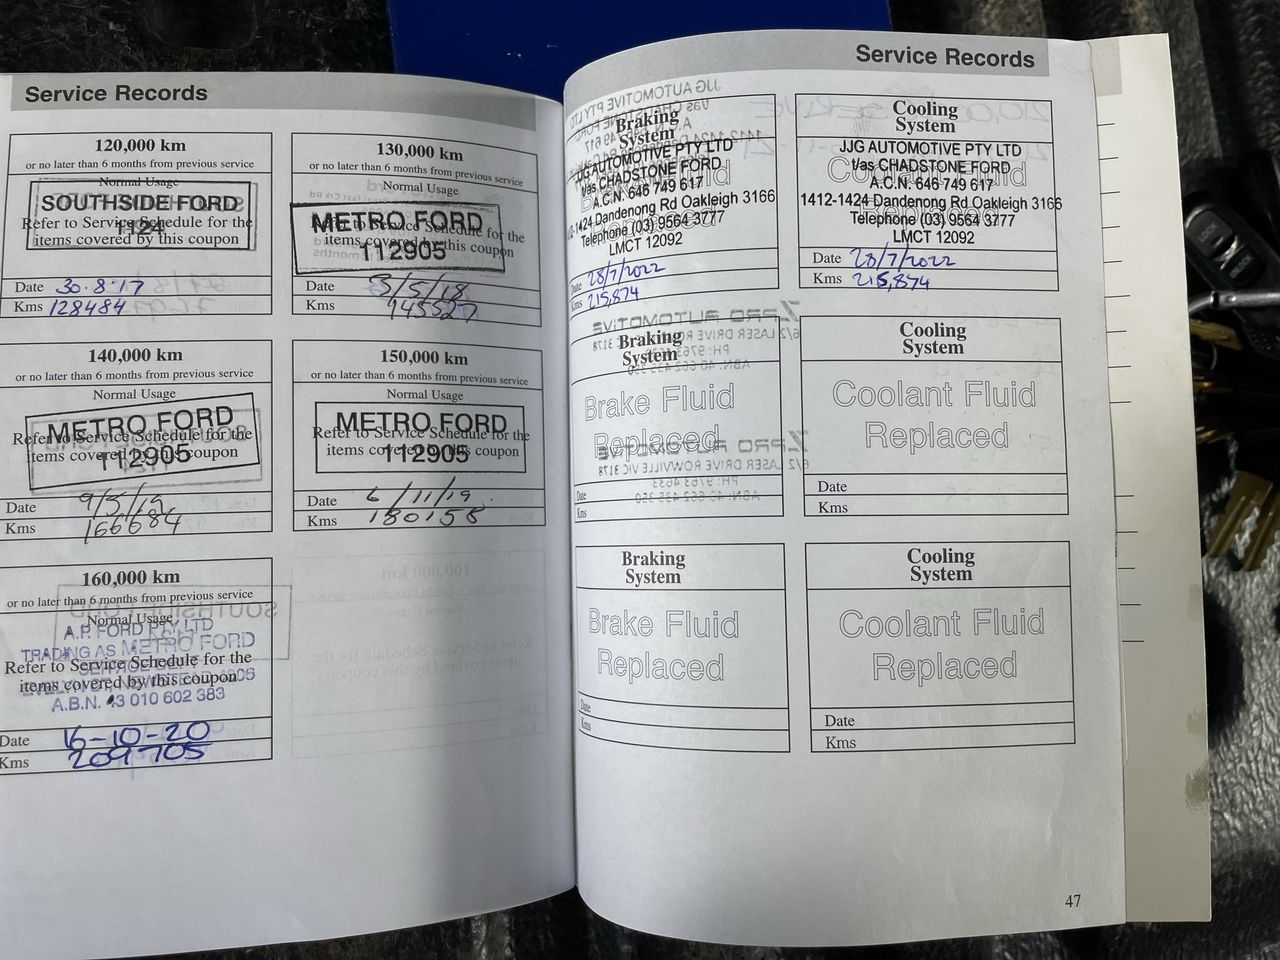 Service Records
120,000 km
or no later than 6 months from previous service
Normal Usage
SOUTHSIDE FORD
Refer to Service Schedule for the
1124
items covered by this coupon
Date 30.8.17
Kms 128484
130,000 km
or no later than 6 months from previous service
Normal Usage
METRO FORD
Refer to Service Schedule for the
items covered by this coupon
112905
Date 3/5/18
Kms 145527
140,000 km
or no later than 6 months from previous service
Normal Usage
METRO FORD
Refer to Service Schedule for the
items covered by this coupon
112905
Date 9/5/19
Kms 166684
150,000 km
or no later than 6 months from previous service
Normal Usage
METRO FORD
Refer to Service Schedule for the
items covered by this coupon
112905
Date 6/11/19.
Kms 180158
160,000 km
or no later than 6 months from previous service
Normal Usage
A.P. FORD PTY LTD
TRADING AS METRO FORD
Refer to Service Schedule for the
items covered by this coupon
A.B.N. 43 010 602 383
Date 16-10-20
Kms 209705
Service Records
Braking
System
JJG AUTOMOTIVE PTY LTD
t/as CHADSTONE FORD
A.C.N. 646 749 617
1424 Dandenong Rd Oakleigh 3166
Telephone (03) 9564 3777
LMCT 12092
Date 28/7/2022
Kms 215,874
Cooling
System
JJG AUTOMOTIVE PTY LTD
t/as CHADSTONE FORD
Coolant Fluid
A.C.N. 646 749 617
1412-1424 Dandenong Rd Oakleigh 3166
Replaced
Telephone (03) 9564 3777
LMCT 12092
Date 28/7/2022
Kms 215,874
Braking
System
Brake Fluid
Replaced
Date
Kms
Cooling
System
Coolant Fluid
Replaced
Date
Kms
Braking
System
Brake Fluid
Replaced
Date
Kms
Cooling
System
Coolant Fluid
Replaced
Date
Kms
47
LOCK